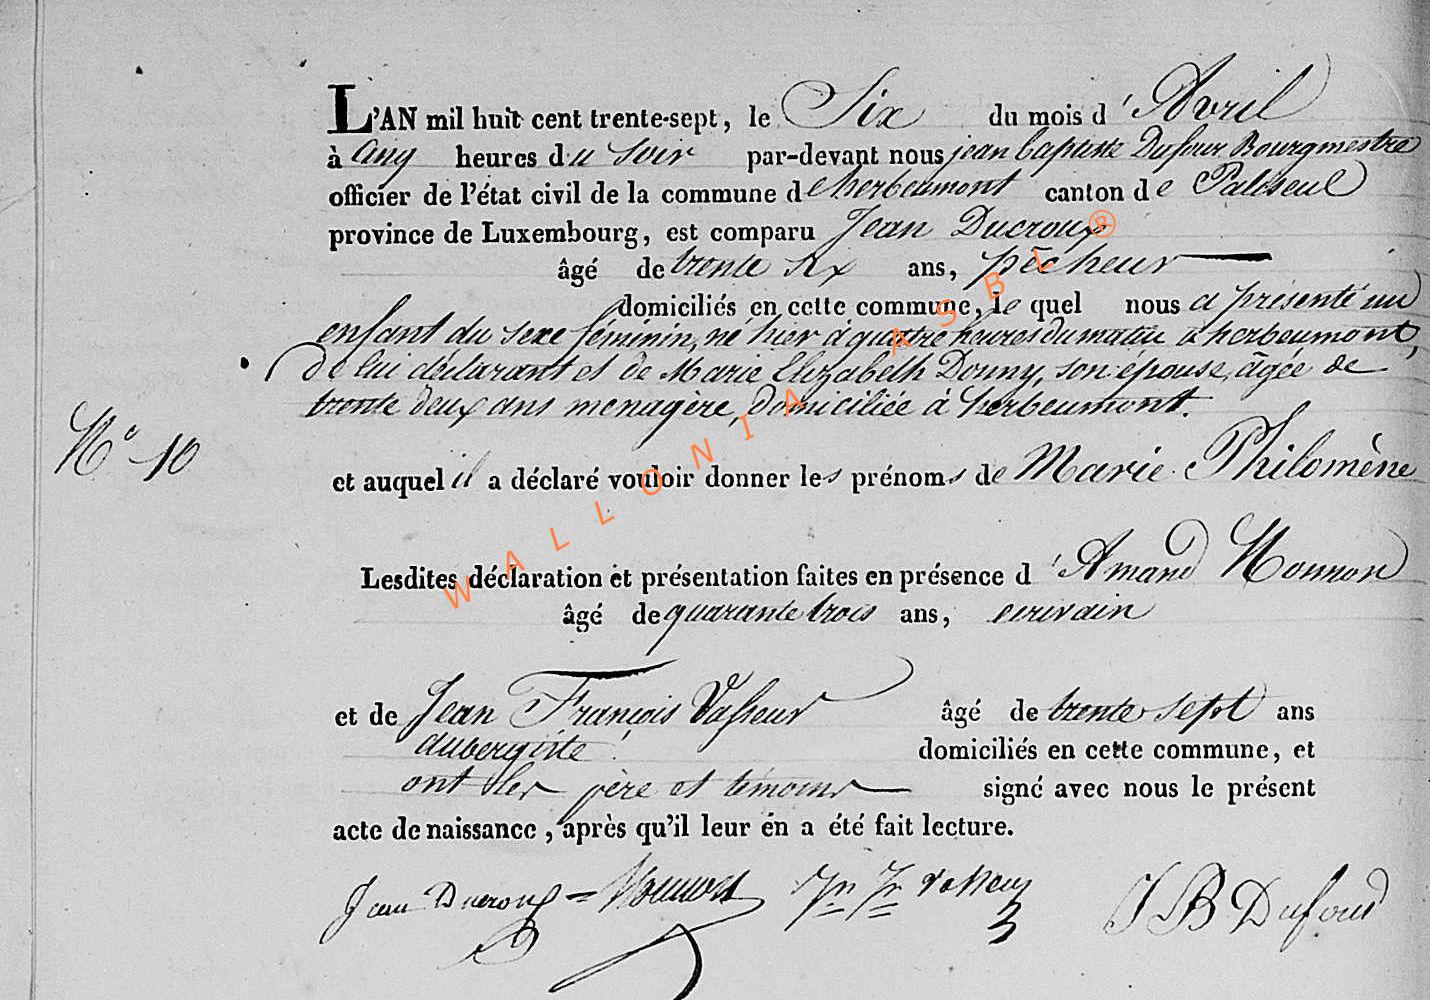 L'AN mil huit cent trente-sept, le Six du mois d'Avril
à Cinq heures du Soir par-devant nous jean baptiste Dufour Bourgmestre
officier de l'état civil de la commune de herbeumont canton de Paliseul
province de Luxembourg, est comparu Jean Ducroux
âgé de trente six ans, pêcheur
domiciliés en cette commune, le quel nous a présenté un
enfant du sexe féminin, né hier à quatre heures du matin a herbeumont,
de lui déclarant et de Marie Elizabeth Donny, son épouse, âgée de
trente deux ans menagère, domiciliée à herbeumont.
N° 10
et auquel il a déclaré vouloir donner les prénoms de Marie Philomène
Lesdites déclaration et présentation faites en présence d'Amand Monnon
âgé de quarante trois ans, ecrivain
et de Jean François Vasseur âgé de trente sept ans
aubergiste domiciliés en cette commune, et
ont les père et témoins signé avec nous le présent
acte de naissance, après qu'il leur en a été fait lecture.
Jean Ducroux Jn Fr Vasseur J B Dufour
WALLONIA ASBL ®